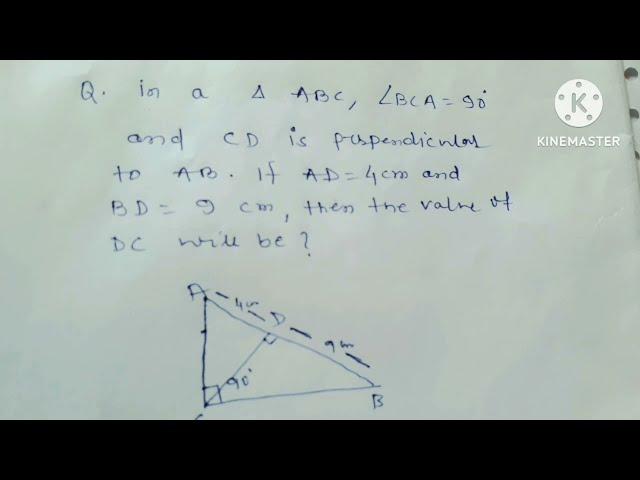 Q. in a Δ ABC, ∠BCA = 90°
and CD is perpendicular
to AB. If AD = 4 cm and
BD = 9 cm, then the value of
DC will be?
K
KINEMASTER
A
4 cm
D
9 cm
90°
B